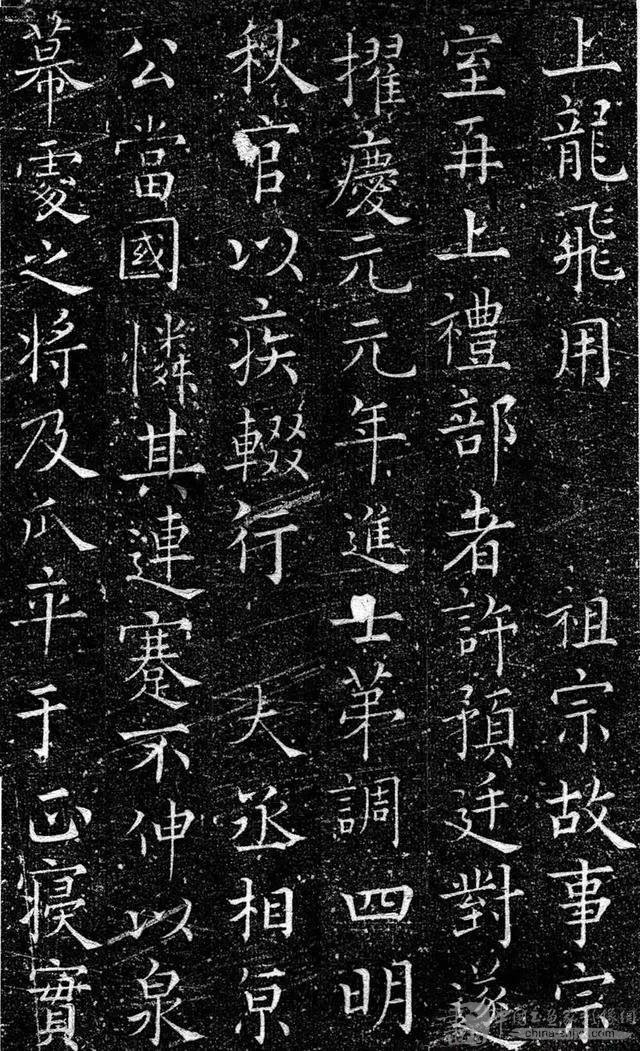 上龍飛用　祖宗故事宗
室再上禮部者許預廷對遂
擢慶元元年進士第調四明
秋官以疾輟行　大丞相亰
公當國憐其連蹇不伸以泉
幕處之將及瓜卒于正寢實